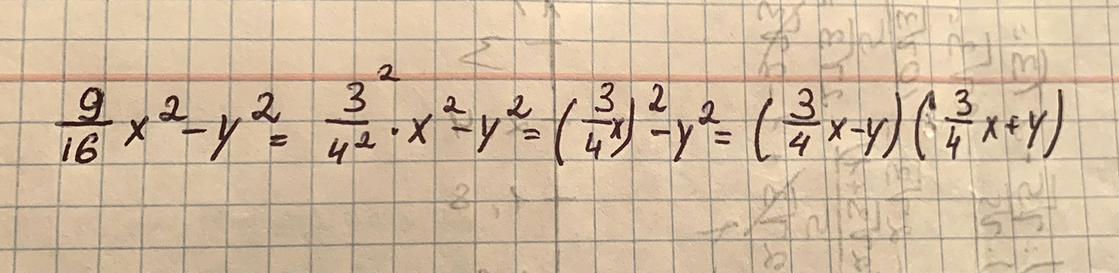 9/16 x² - y² = 3²/4² · x² - y² = (3/4 x)² - y² = (3/4 x - y)(3/4 x + y)